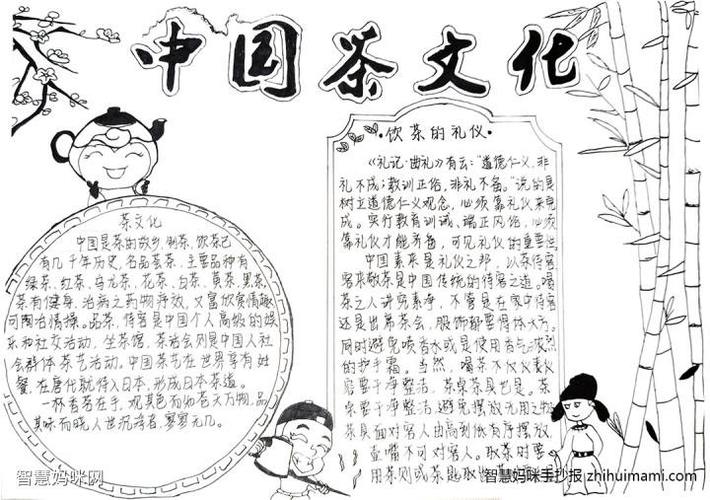 中国茶文化
茶文化
中国是茶的故乡,制茶、饮茶已
有几千年历史,名品荟萃,主要品种有
绿茶、红茶、乌龙茶、花茶、白茶、黄茶、黑茶。
茶有健身、治病之药物疗效,又富欣赏情趣,
可陶冶情操。品茶、待客是中国个人高级的娱
乐和社交活动,坐茶馆、茶话会则是中国人社
会群体茶艺活动。中国茶艺在世界享有
在唐代就传入日本,形成日本茶道。
一杯香茶在手,观其色而
其味而晓人世沉浮者,寥寥无几。
饮茶的礼仪
《礼记·曲礼》有云:“道德仁义,非
礼不成;教训正俗,非礼不备。”说的是
树立道德仁义观念,必须靠礼仪来完
成。实行教育训诫、端正风俗,必须
靠礼仪才能齐备,可见礼仪的重要性。
中国素来是礼仪之邦,以茶待客
客来敬茶是中国传统的待客之道。喝
茶之人讲究素净,不管是在家中待客
还是出席茶会,服饰都要得体大方。
同时避免喷香水或是使用香气浓烈
的护手霜。当然,喝茶不仅仪表仪
容要干净整洁,茶桌茶具也是。茶
桌要干净整洁,避免摆放无用之物
茶具面对客人由高到低有序摆放,
壶嘴不可对客人。取茶时要
用茶则或茶匙取
智慧妈咪网
智慧妈咪手抄报 zhihuimami.com